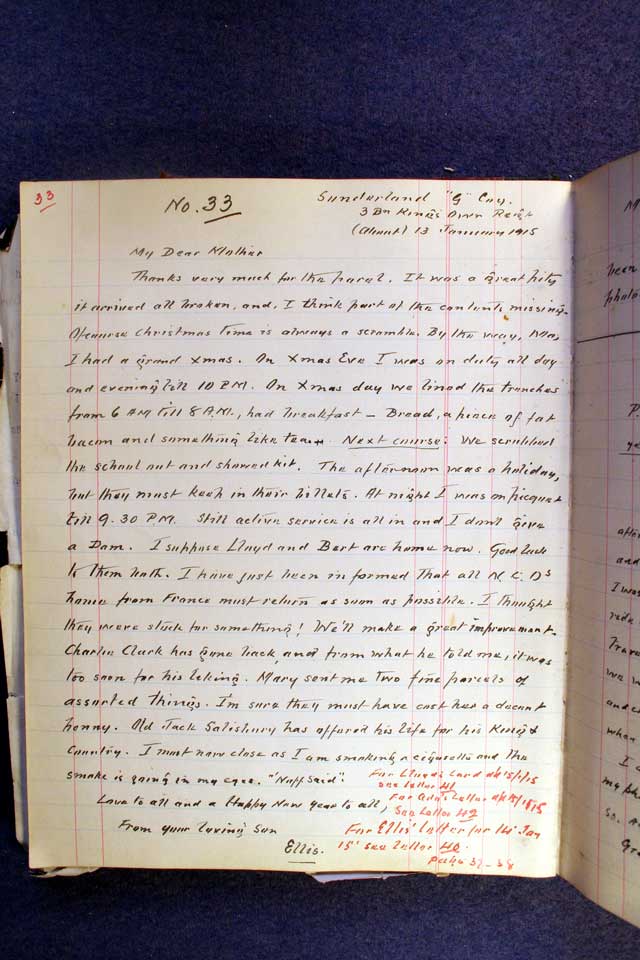 33
No. 33
Sunderland "G" Coy.
3 Bn King's Own Regt
(about) 13 January 1915
My Dear Mother
Thanks very much for the parcel. It was a great pity
it arrived all broken, and, I think part of the contents missing.
Ofcourse Christmas time is always a scramble. By the way, Ma,
I had a grand xmas. On Xmas Eve I was on duty all day
and evening till 10 P.M. On Xmas day we lined the trenches
from 6 AM till 8 A.M., had breakfast – Bread, a piece of fat
bacon and something like tea. Next course. We scrubbed
the school out and showed kit. The afternoon was a holiday,
but they must keep in their billets. At night I was on picquet
till 9.30 P.M. Still active service is all in and I dont give
a Dam. I suppose Lloyd and Bert are home now. Good luck
to them both. I have just been informed that all N.C.Os
home from France must return as soon as possible. I thought
they were stuck for something! We'll make a great improvement.
Charlie Clark has gone back, and from what he told me, it was
too soon for his liking. Mary sent me two fine parcels of
assorted things. I'm sure they must have cost her a decent
penny. Old Jack Salisbury has offered his life for his King &
Country. I must now close as I am smoking a cigarette and the
smoke is going in my eyes. "Nuff Said".
Love to all and a Happy New Year to all,
From your loving Son
Ellis.
For Lloyds Card d/d 15/1/15
see letter 41
For letter
See Letter 42
For Ellis' Letter for 14 Jan
15' see letter 40.
37-38
been
photo
P.
ye
after
and
I was
rode
trave
we w
and c
when
I a
my ph
so. A
Gre